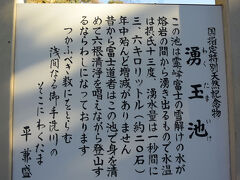 国指定特別天然記念物
湧玉池
わくたまいけ
この池は霊峰富士の雪解けの水が
熔岩の間から湧き出るもので水温
は摂氏十三度、湧水量は一秒間に
三・六キロリットル(約二〇石)
年中殆んど増減がありません
昔から富士道者はこの池で身を清
めて六根清浄を唱えながら登山す
るならわしになっております
つかふべき数にをとらむ
浅間なる御手洗川の
そこにわくたま
平兼盛